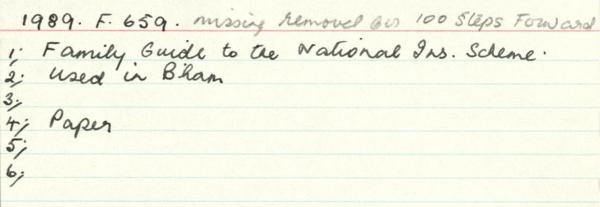 1989. F. 659. missing removed for 100 Steps Forward
1; Family Guide to the National Ins. Scheme.
2; Used in B'ham
3;
4; Paper
5;
6;